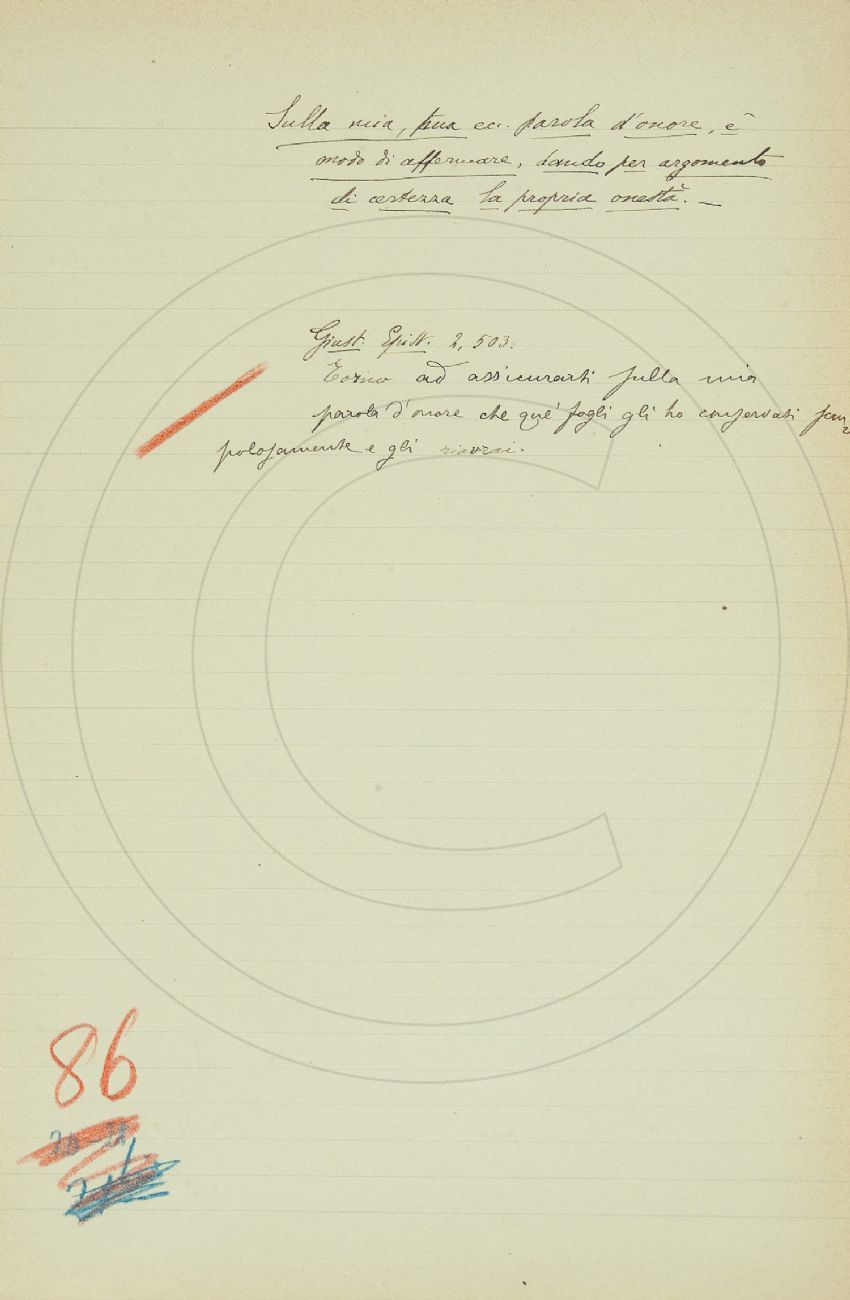 Sulla mia, tua ecc. parola d'onore, è
modo di affermare, dando per argomento
di certezza la propria onestà. —
Giust. Epist. 2, 503:
Torno ad assicurarti sulla mia
parola d'onore che que' fogli gli ho conservati scru
polosamente e gli riavrai.
86